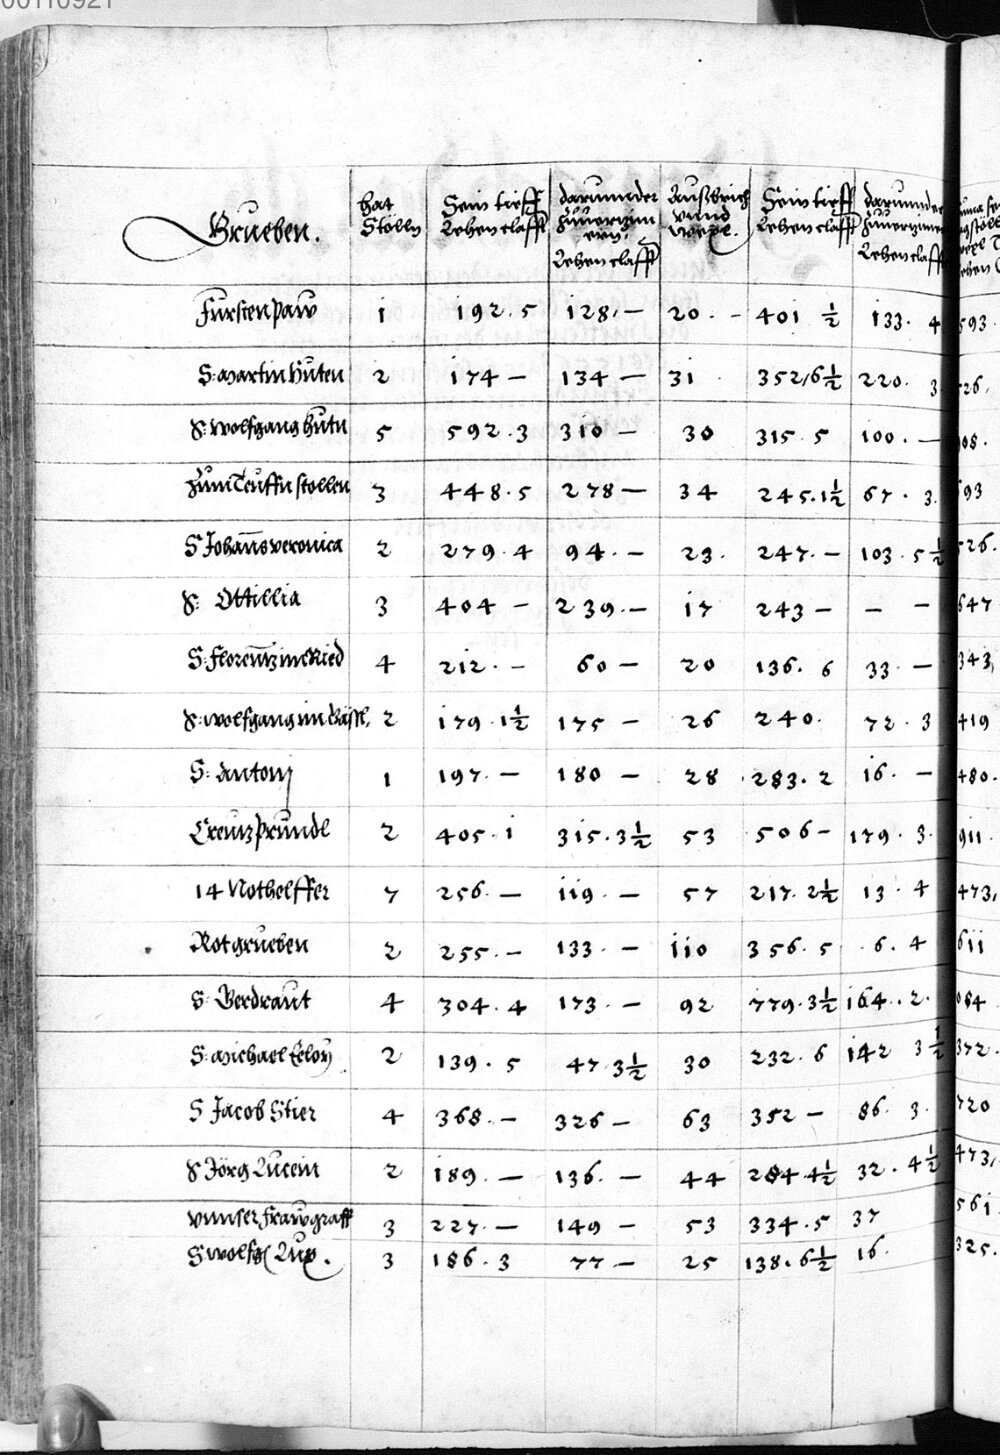 00110921
Grueben. | hat Stolln | Sein tieff Lehenclaffter | darunnder zuuerzimern. Lehenclaffter | Außbrich vnnd wexl. | Sein tieff Lehenclaffter | darunnder zuuerzimern Lehenclaffter
Fürstenpaw | 1 | 192 . 5 | 128 . – | 20 . – | 401 ½ | 133 . 4 | 593 .
S: Martin Hüten | 2 | 174 – | 134 – | 31 . | 352 / 6½ | 220 . 3 | 526 .
S: Wolfgang hütn | 5 | 592 . 3 | 310 – | 30 | 315 . 5 | 100 . – | 908 .
Zum Teuffn stollen | 3 | 448 . 5 | 278 – | 34 | 245 . 1½ | 67 . 3 . | 693
S Johanns veronica | 2 | 279 . 4 | 94 . – | 23 . | 247 . – | 103 . 5½ | 526 .
S: Ottillia | 3 | 404 – | 239 . – | 17 | 243 – | – – | 647
S: Florentz im Ried | 4 | 212 . – | 60 – | 20 | 136 . 6 | 33 . – | 343 ,
S: wolfgang im | 2 | 179 . 1½ | 175 – | 26 | 240 . | 72 . 3 | 419
S: Antonj | 1 | 197 . – | 180 – | 28 | 283 . 2 | 16 . – | 480 .
Creutzpründl | 2 | 405 . 1 | 315 . 3½ | 53 | 506 – | 179 . 3 . | 911 .
14 Nothelffer | 7 | 256 . – | 119 . – | 57 | 217 . 2½ | 13 . 4 | 473 ,
Rotgrueben | 2 | 255 . – | 133 . – | 110 | 356 . 5 | . 6 . 4 | 611
S: Gerdraut | 4 | 304 . 4 | 173 . – | 92 | 779 . 3½ | 164 . . 2 . | 084
S: Michael Eeloy | 2 | 139 . 5 | 47 3½ | 30 | 232 . 6 | 142 3½ | 372 .
S Jacob Stier | 4 | 368 . – | 326 – | 63 | 352 – | 86 . 3 . | 720
S Jörg Lucein | 2 | 189 . – | 136 . – | 44 | 284 4½ | 32 . 4½ | 473 ,
vnnser frawgraff | 3 | 227 . – | 149 – | 53 | 334 . 5 | 37 | 561
S wolfg: Lux . | 3 | 186 . 3 | 77 – | 25 | 138 . 6½ | 16 . | 325 .